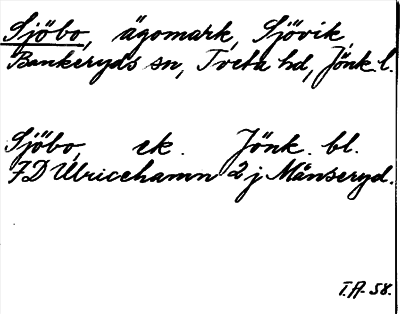 Sjöbo, ägomark, Sjövik,
Bankeryds sn, Tveta hd, Jönk. l.
Sjöbo, ek. Jönk. bl.
7D Ulricehamn 2 j Månseryd.
I.A-58.